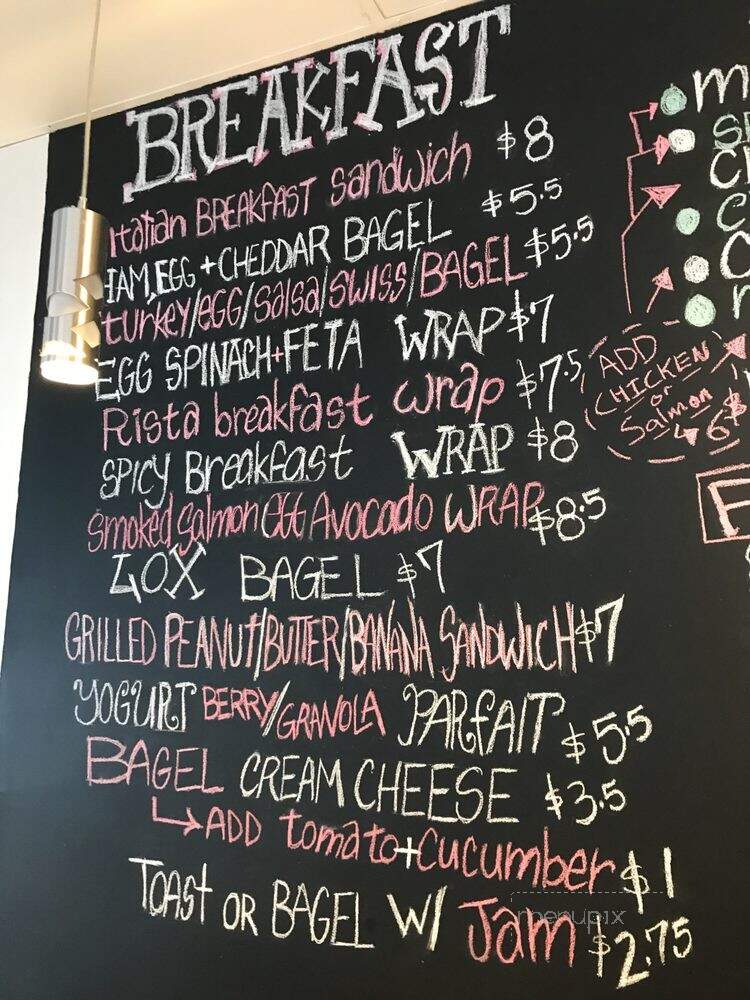 BREAKFAST
Italian BREAKFAST Sandwich $8
HAM, EGG + CHEDDAR BAGEL $5.5
turkey/EGG/Salsa/SWISS/BAGEL $5.5
EGG SPINACH+FETA WRAP $7
Rista breakfast wrap $7.5
SPICY Breakfast WRAP $8
Smoked Salmon EGG Avocado WRAP $8.5
LOX BAGEL $7
GRILLED PEANUT/BUTTER/BANANA SANDWICH $7
YOGURT BERRY/GRANOLA PARFAIT $5.5
BAGEL CREAM CHEESE $3.5
ADD tomato+Cucumber $1
Toast OR BAGEL W/ Jam $2.75
ADD
CHICKEN
or
Salmon
6
menupix